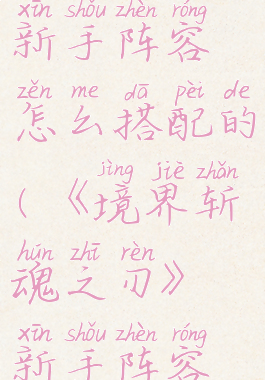 xīn shǒu zhèn róng
新手阵容
zěn me dā pèi de
怎么搭配的
jìng jiè zhǎn
(《境界斩
hún zhī rèn
魂之刃》
xīn shǒu zhèn róng
新手阵容